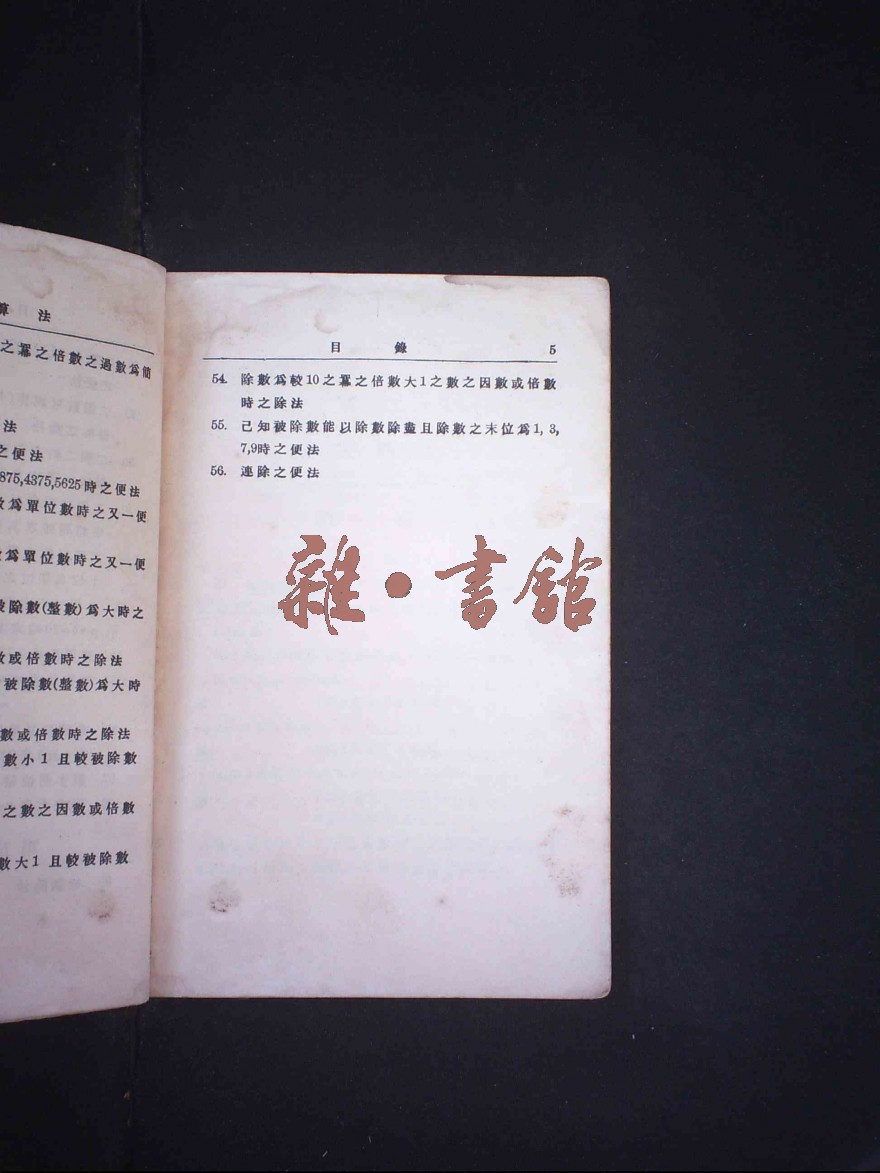 算 法
之冪之倍數之過數爲簡
法
之便法
875,4375,5625時之便法
爲單位數時之又一便
爲單位數時之又一便
被除數(整數)爲大時之
或倍數時之除法
被除數(整數)爲大時
數或倍數時之除法
數小1且較被除數
之數之因數或倍數
數大1且較被除數
目 錄 5
54. 除數爲較10之冪之倍數大1之數之因數或倍數
時之除法
55. 己知被除數能以除數除盡且除數之末位爲1, 3,
7,9時之便法
56. 連除之便法
雜·書館